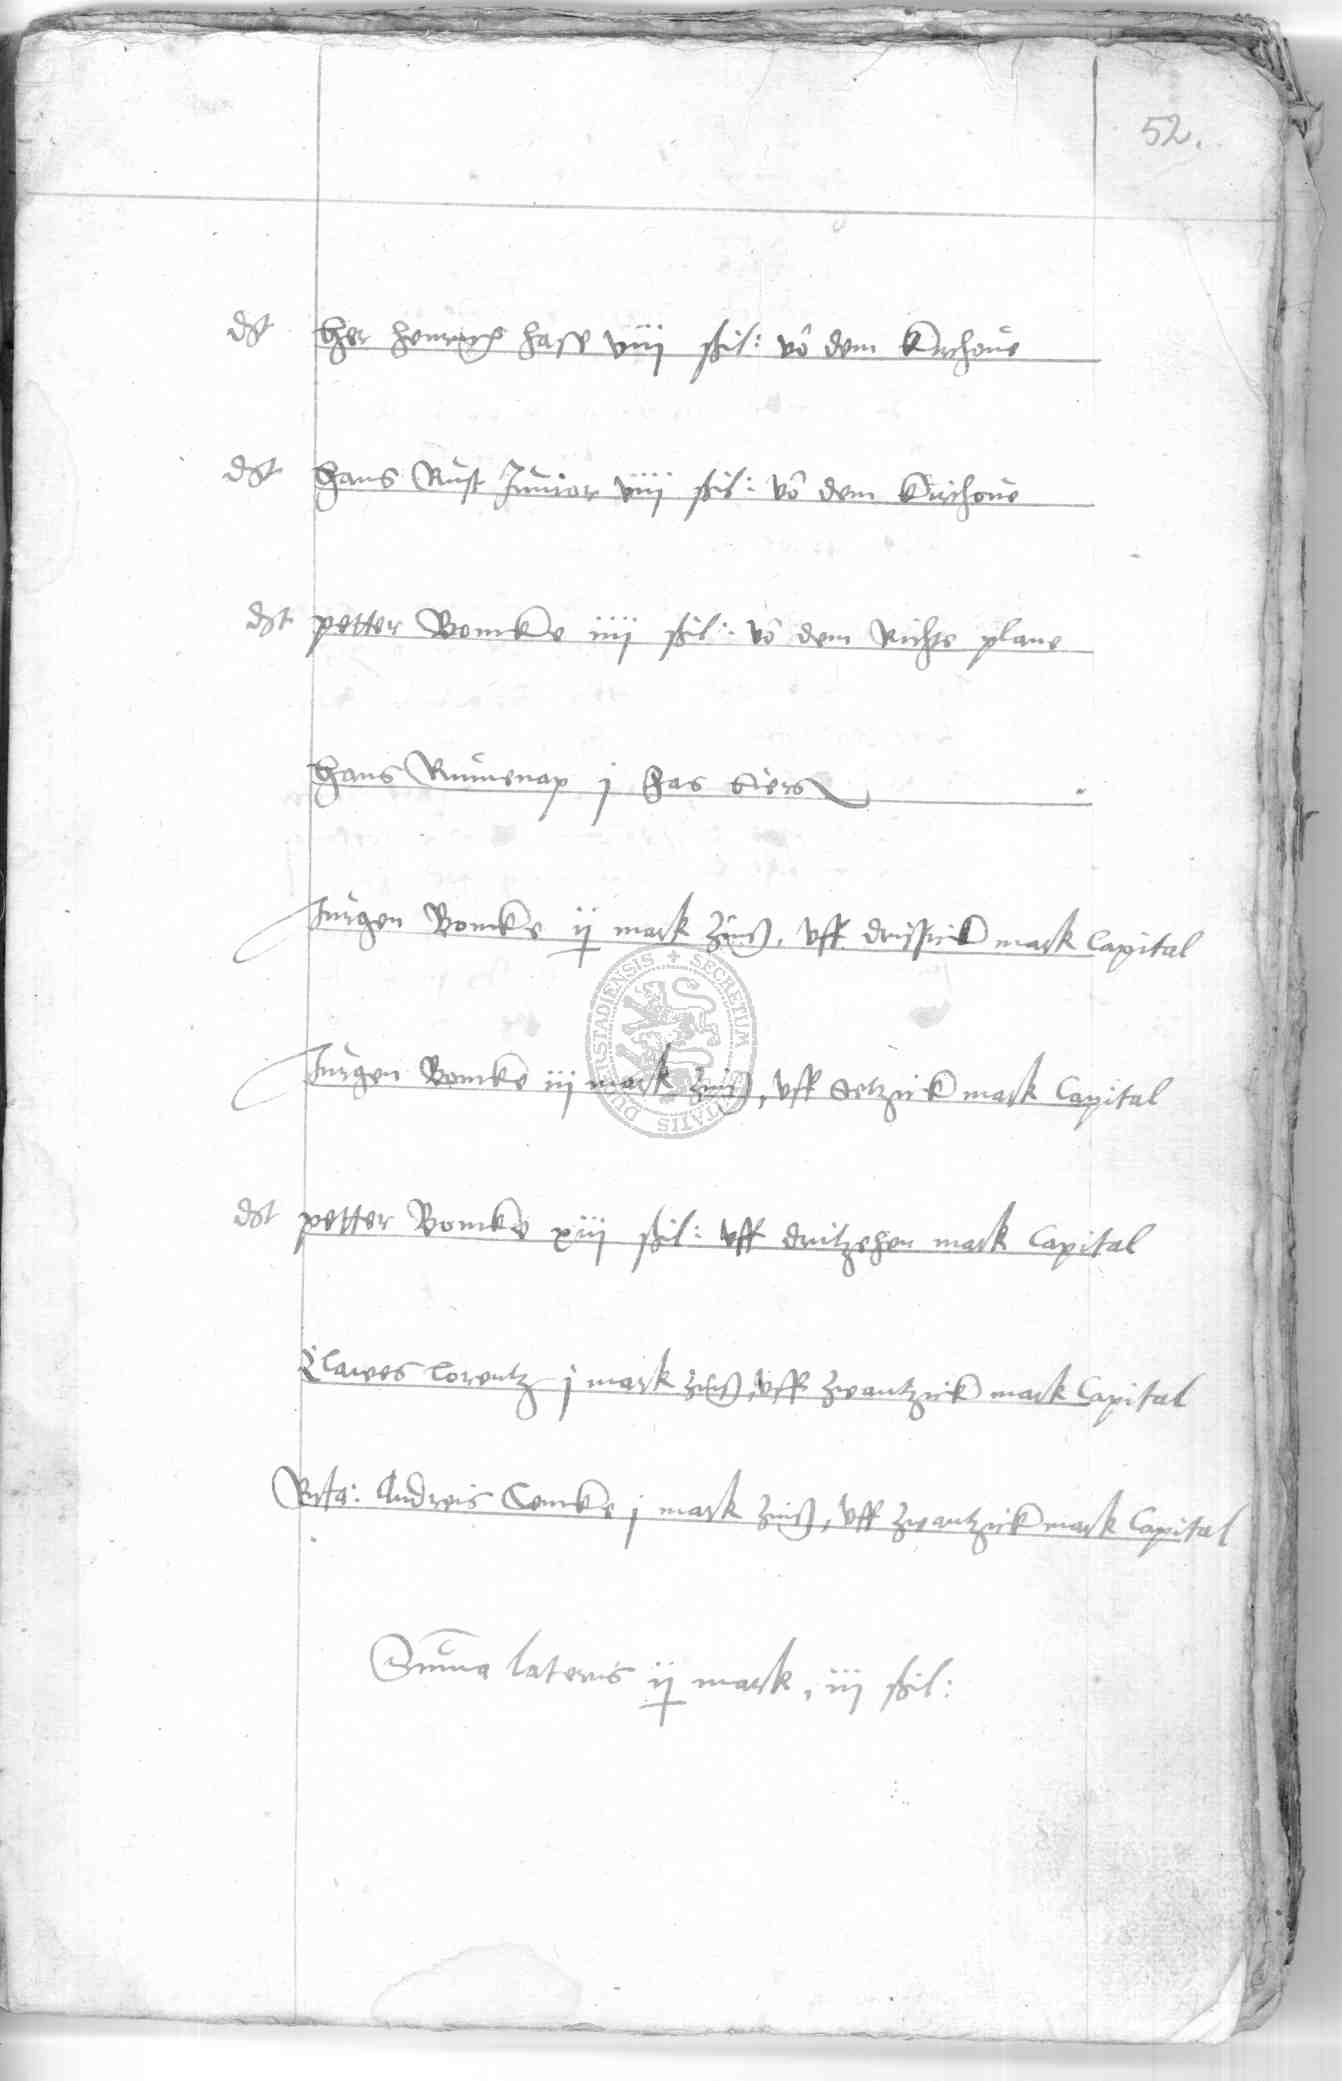 52.
dst Her Henrich Hasse viiij ßil: vo dem Kirchoue
dst Hans Rust Junior viiij ßil: vo dem Kirchoue
dst petter Bomke iiij ßil: vo dem Richte plane
Hans j has
Jurgen Bomke ij mark Zinß, vff drissick mark Capital
Jurgen Bomke iij mark Zinß, vff setzick mark Capital
dst petter Bomke xiij ßil: vff dritzehen mark Capital
Clawes Lorentz j mark zinß, vff zwantzick mark Capital
Andreis j mark zinß, vff zwantzick mark Capital
Suma lateris ij mark, iij ßil:
SECRETUM DUDERSTADIENSIS